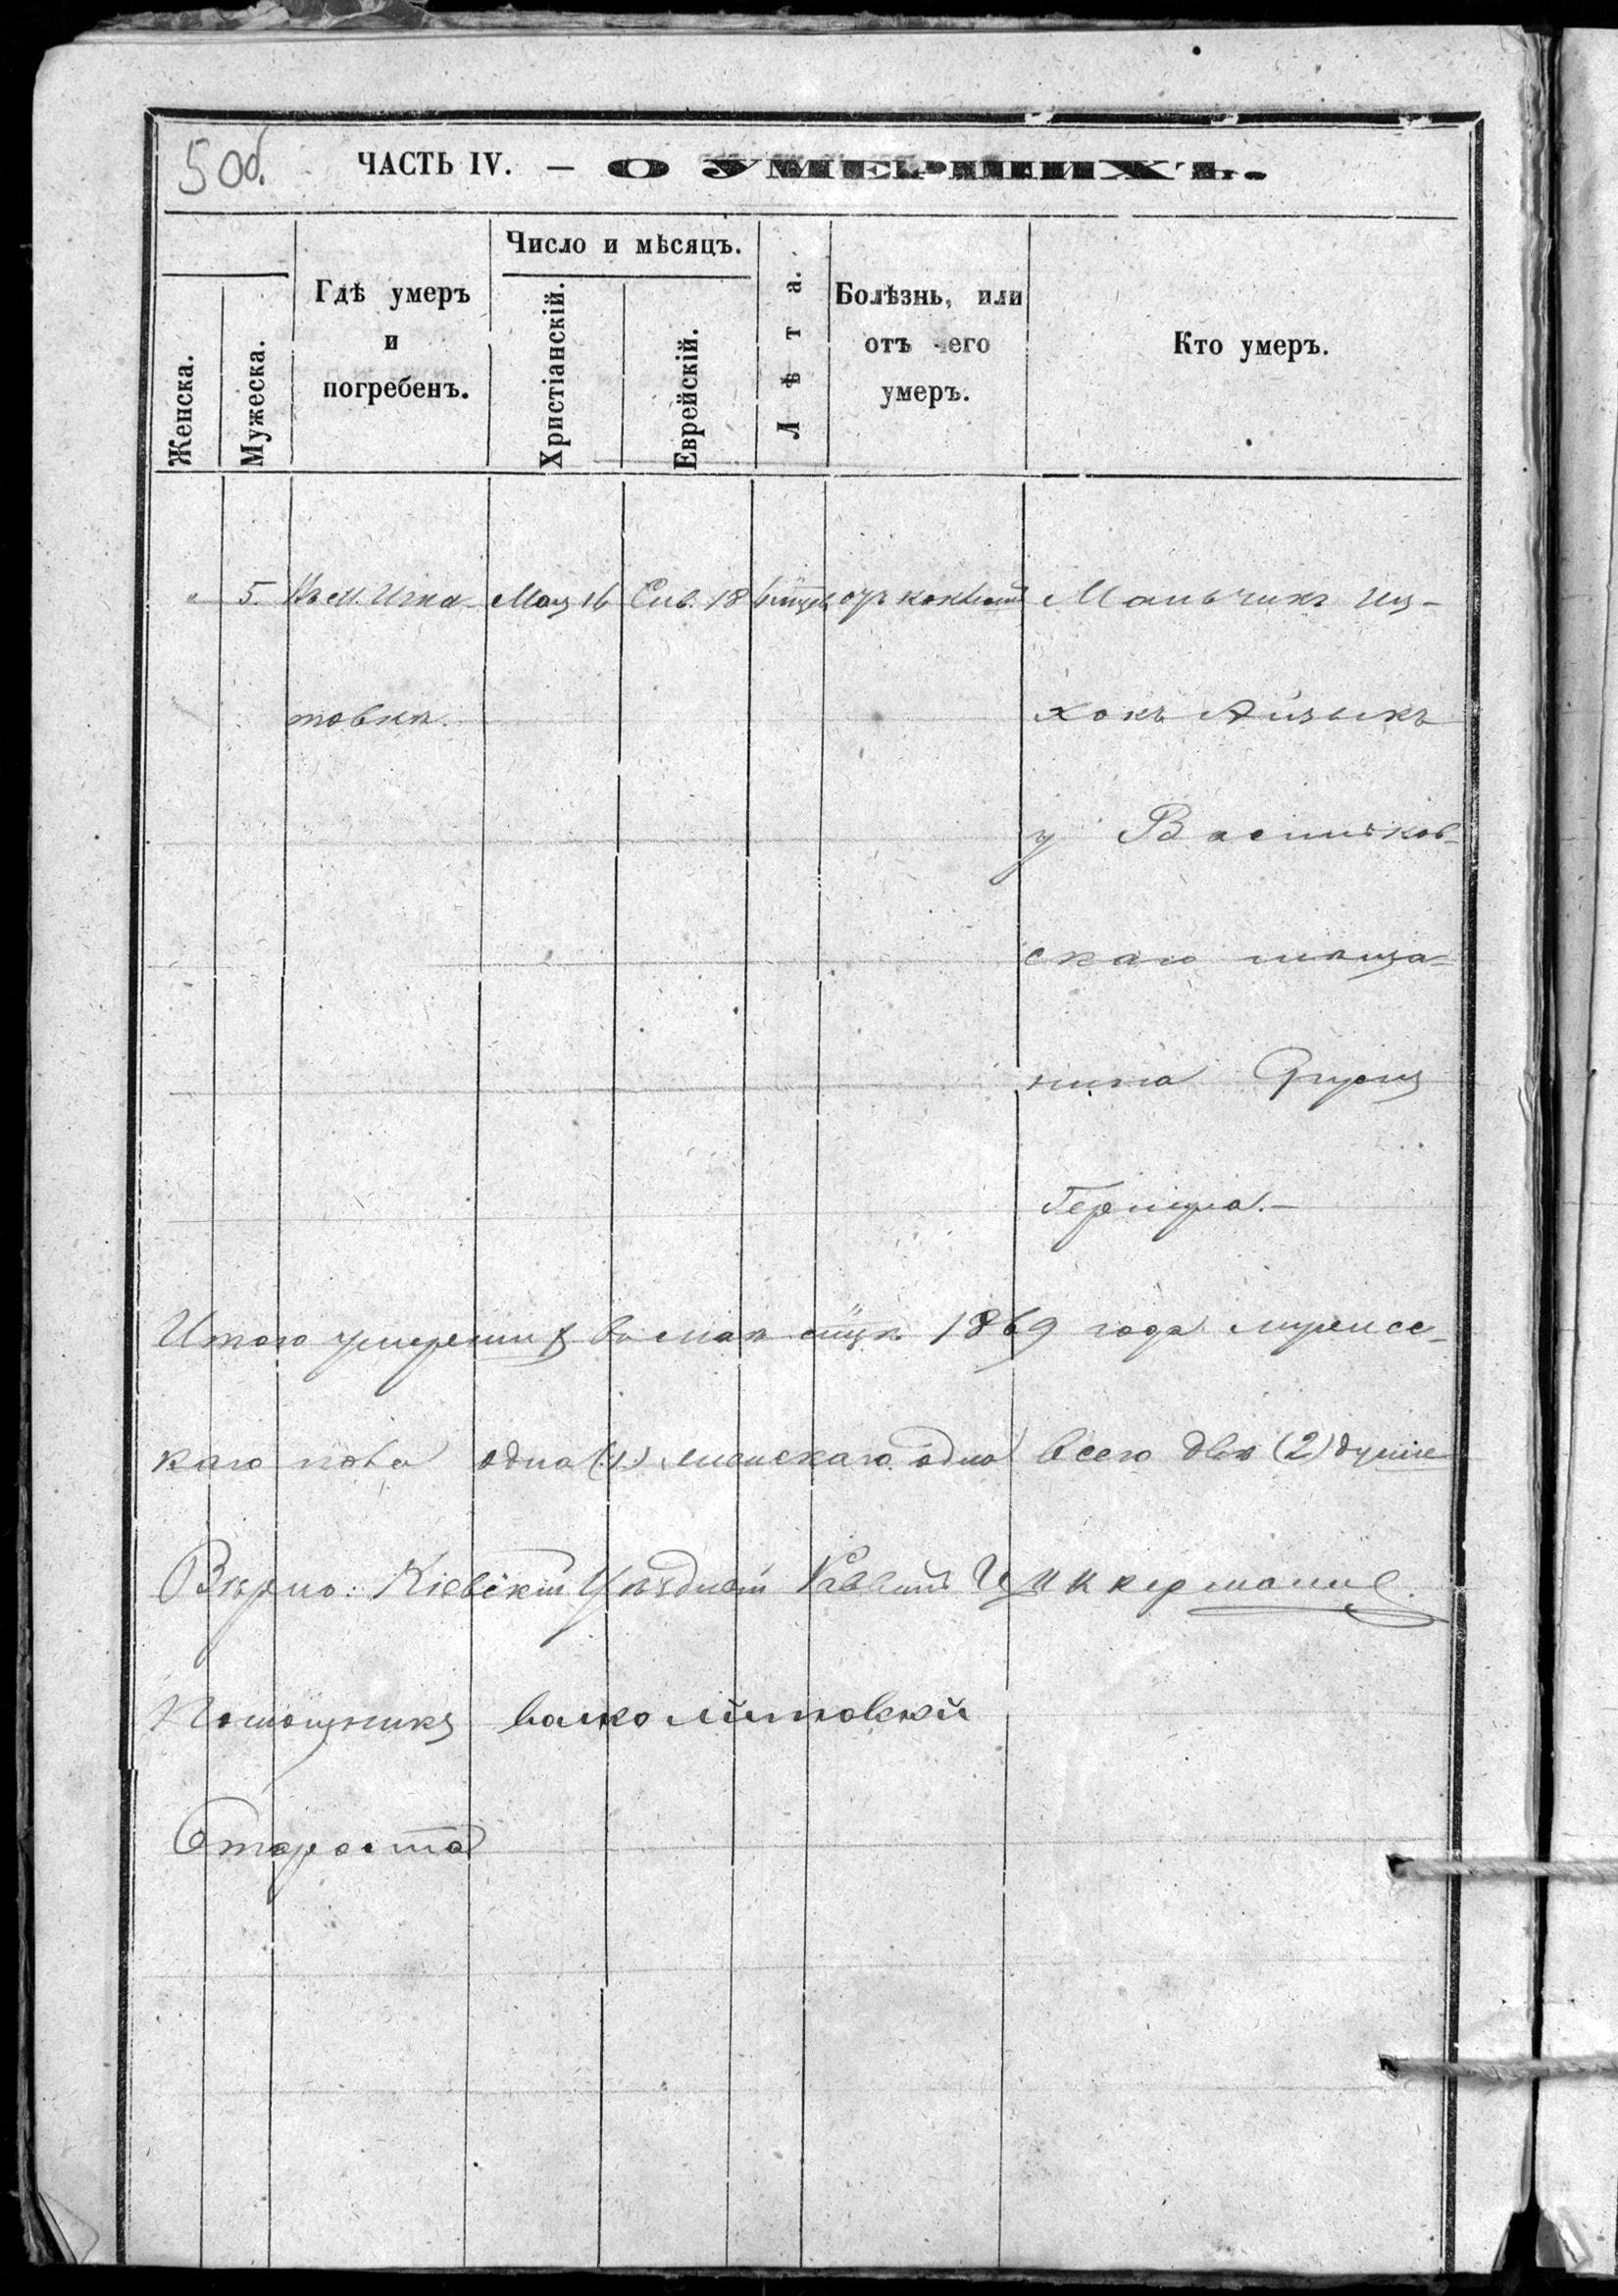 5 об.
ЧАСТЬ IV. — О УМЕРШИХЪ.
Женска.
Мужеска.
Гдѣ умеръ
и
погребенъ.
Число и мѣсяцъ.
Христіанскій.
Еврейскій.
Лѣта.
Болѣзнь, или
отъ чего
умеръ.
Кто умеръ.
" 5. Въ м. Игна- Мая 16 Сив. 18 Мальчикъ Иц-
товкѣ. хокъ Айзыкъ
у Васильков-
скаго мѣща-
нина
Гершка.—
Итого умершихъ въ маѣ 1869 года мужес-
каго пола одна (1) женскаго одна всего двѣ (2) души
Вѣрно: Кіевскій Уѣздный Раввинъ Цукерманъ
Помощникъ
Староста